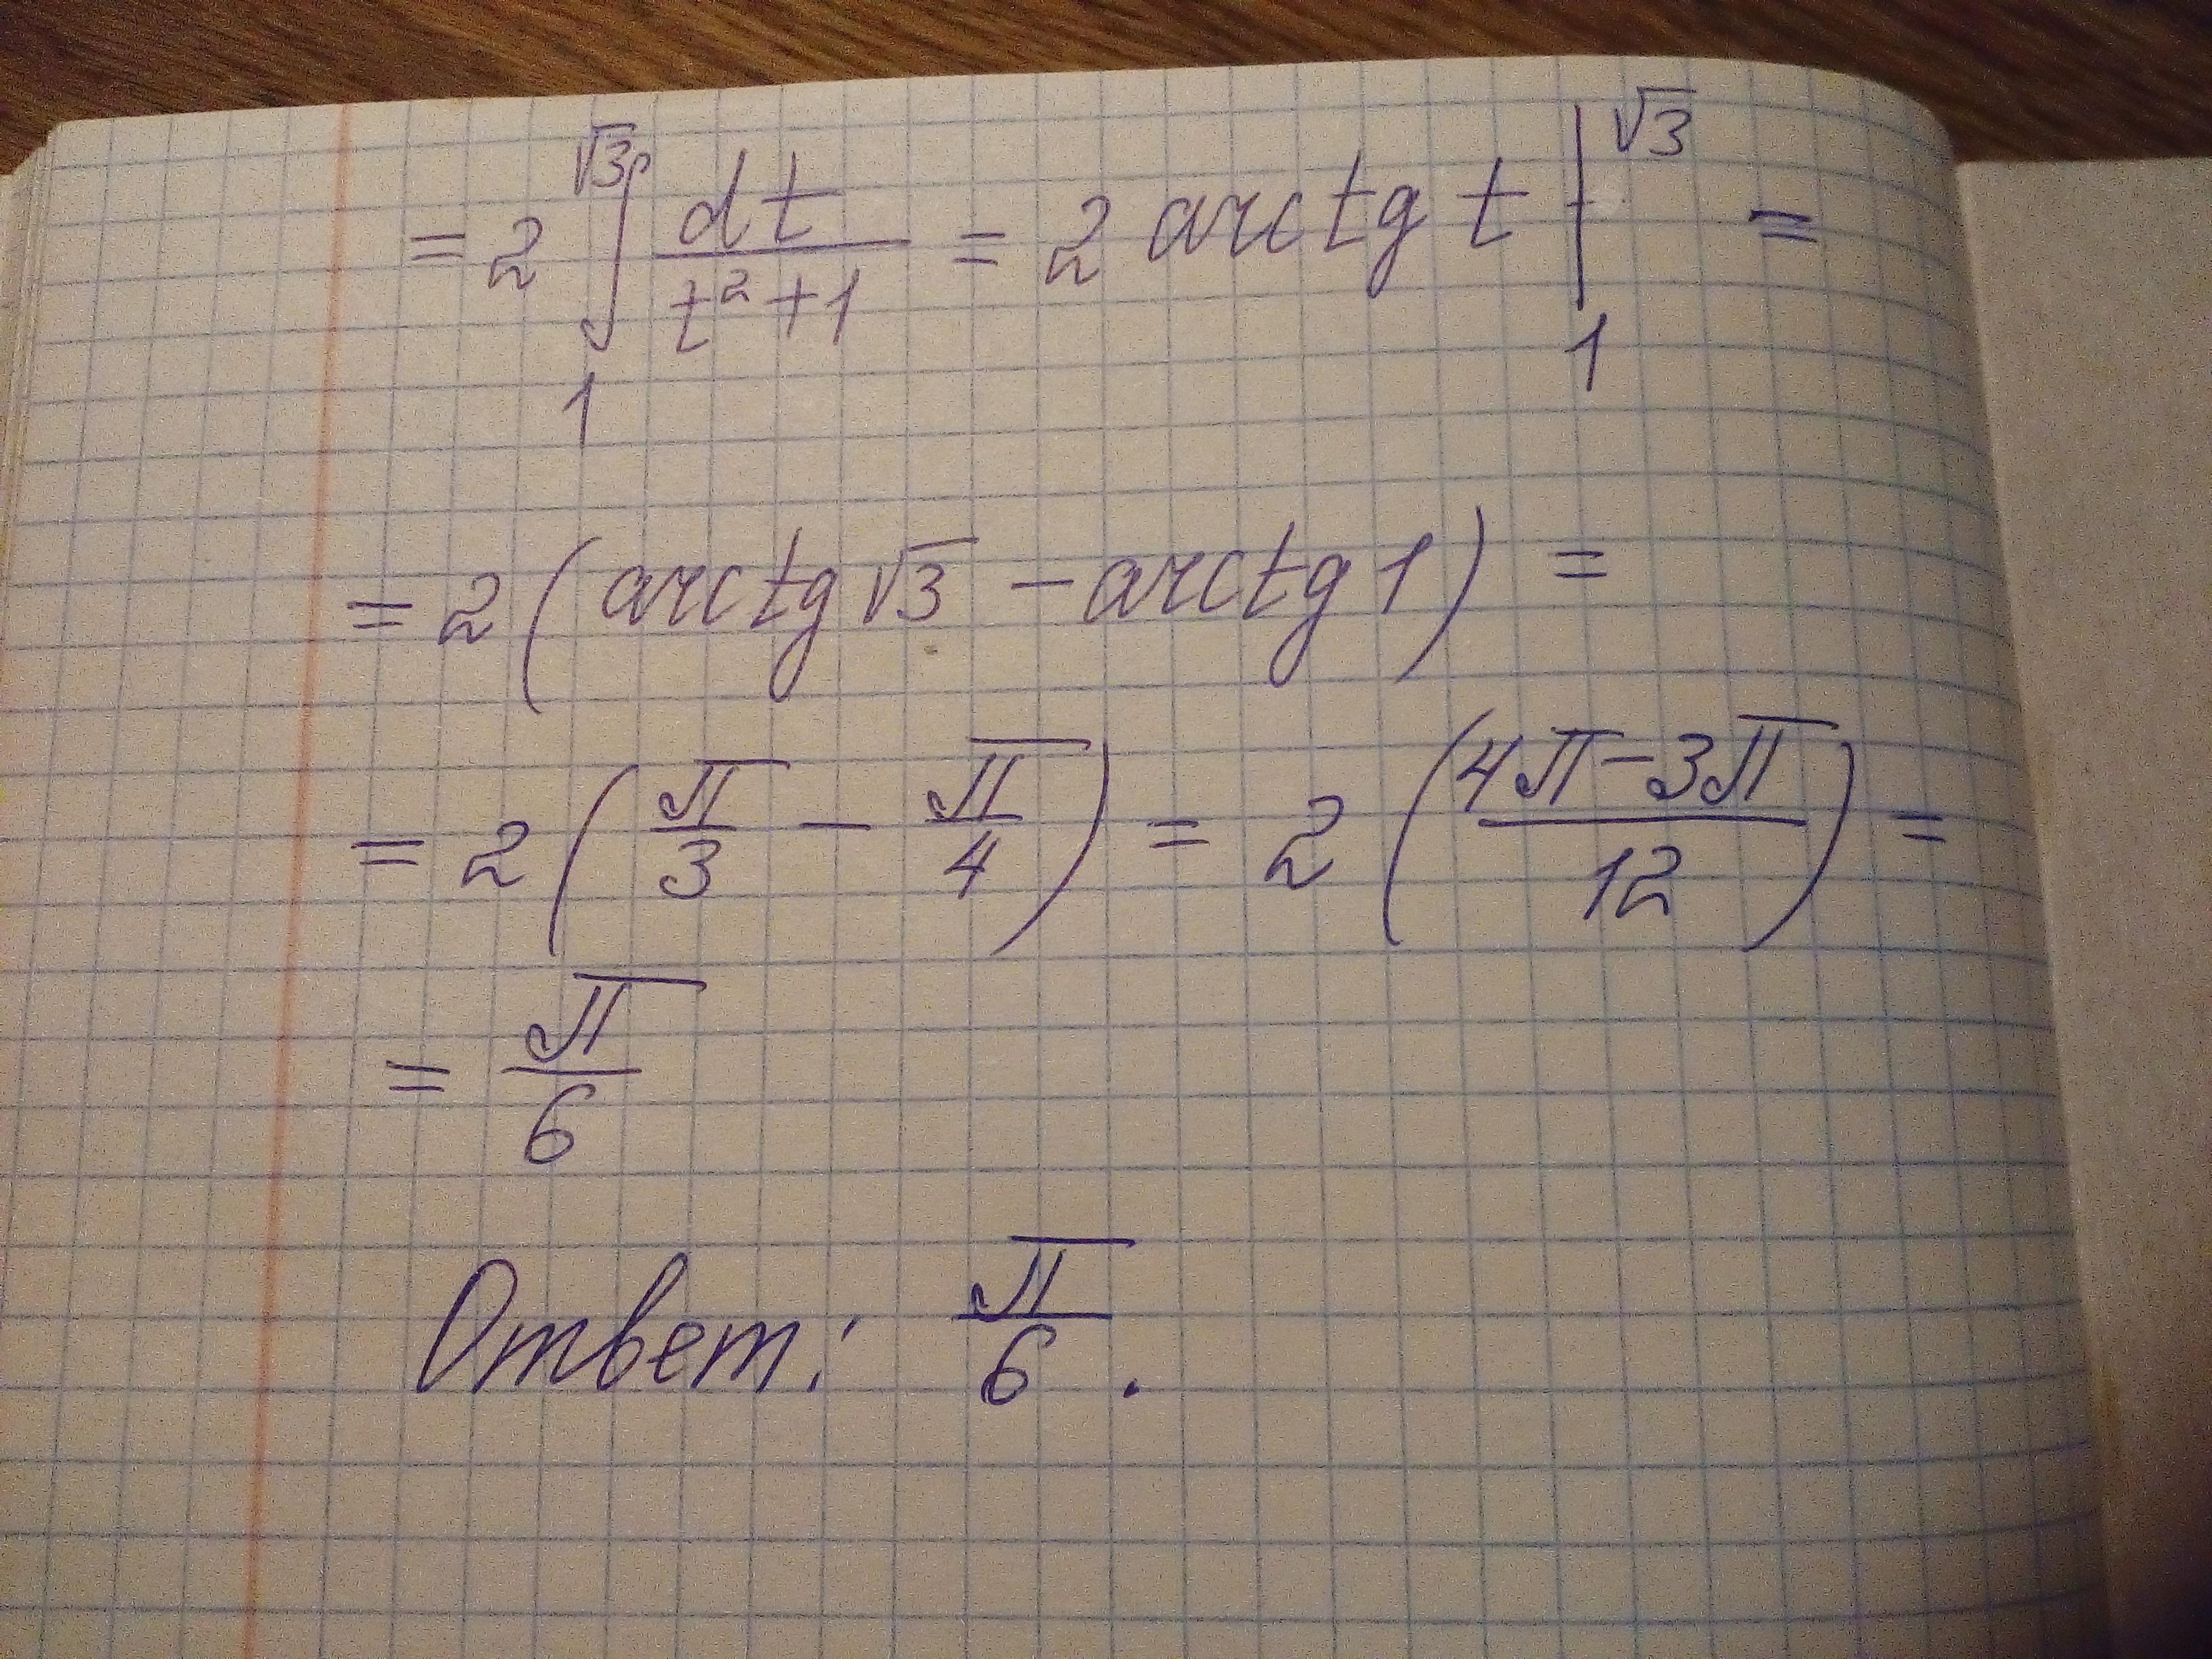 = 2 ∫₁^√3 dt/(t²+1) = 2 arctg t |₁^√3 =
= 2 (arctg √3 − arctg 1) =
= 2 (π/3 − π/4) = 2 ((4π−3π)/12) =
= π/6
Ответ: π/6.